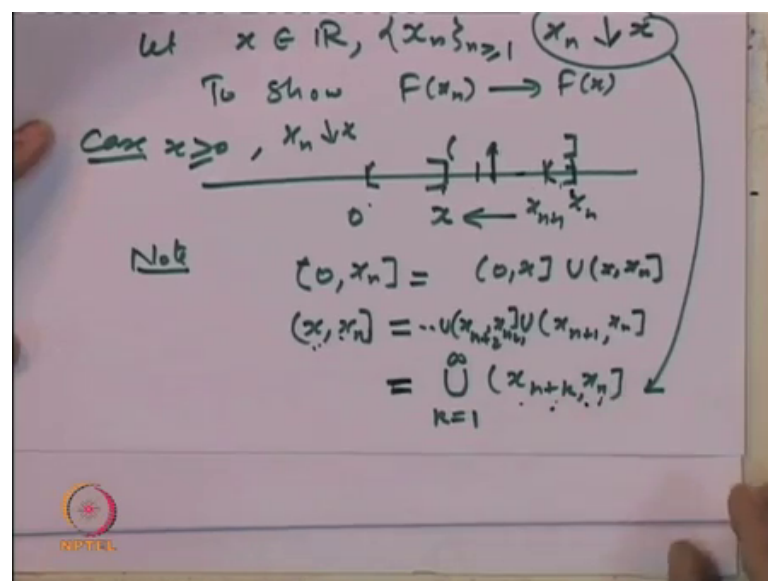 Let x ∈ ℝ, {xₙ}ₙ≥₁ xₙ ↓ x
To show F(xₙ) → F(x)
Case x ≥ 0, xₙ ↓ x
0 x ← xₙ₊₁ xₙ
Note (0, xₙ] = (0, x] ∪ (x, xₙ]
(x, xₙ] = ··∪(xₙ₊₂, xₙ₊₁]∪(xₙ₊₁, xₙ]
= ∪ₖ₌₁^∞ (xₙ₊ₖ, xₙ]
NPTEL